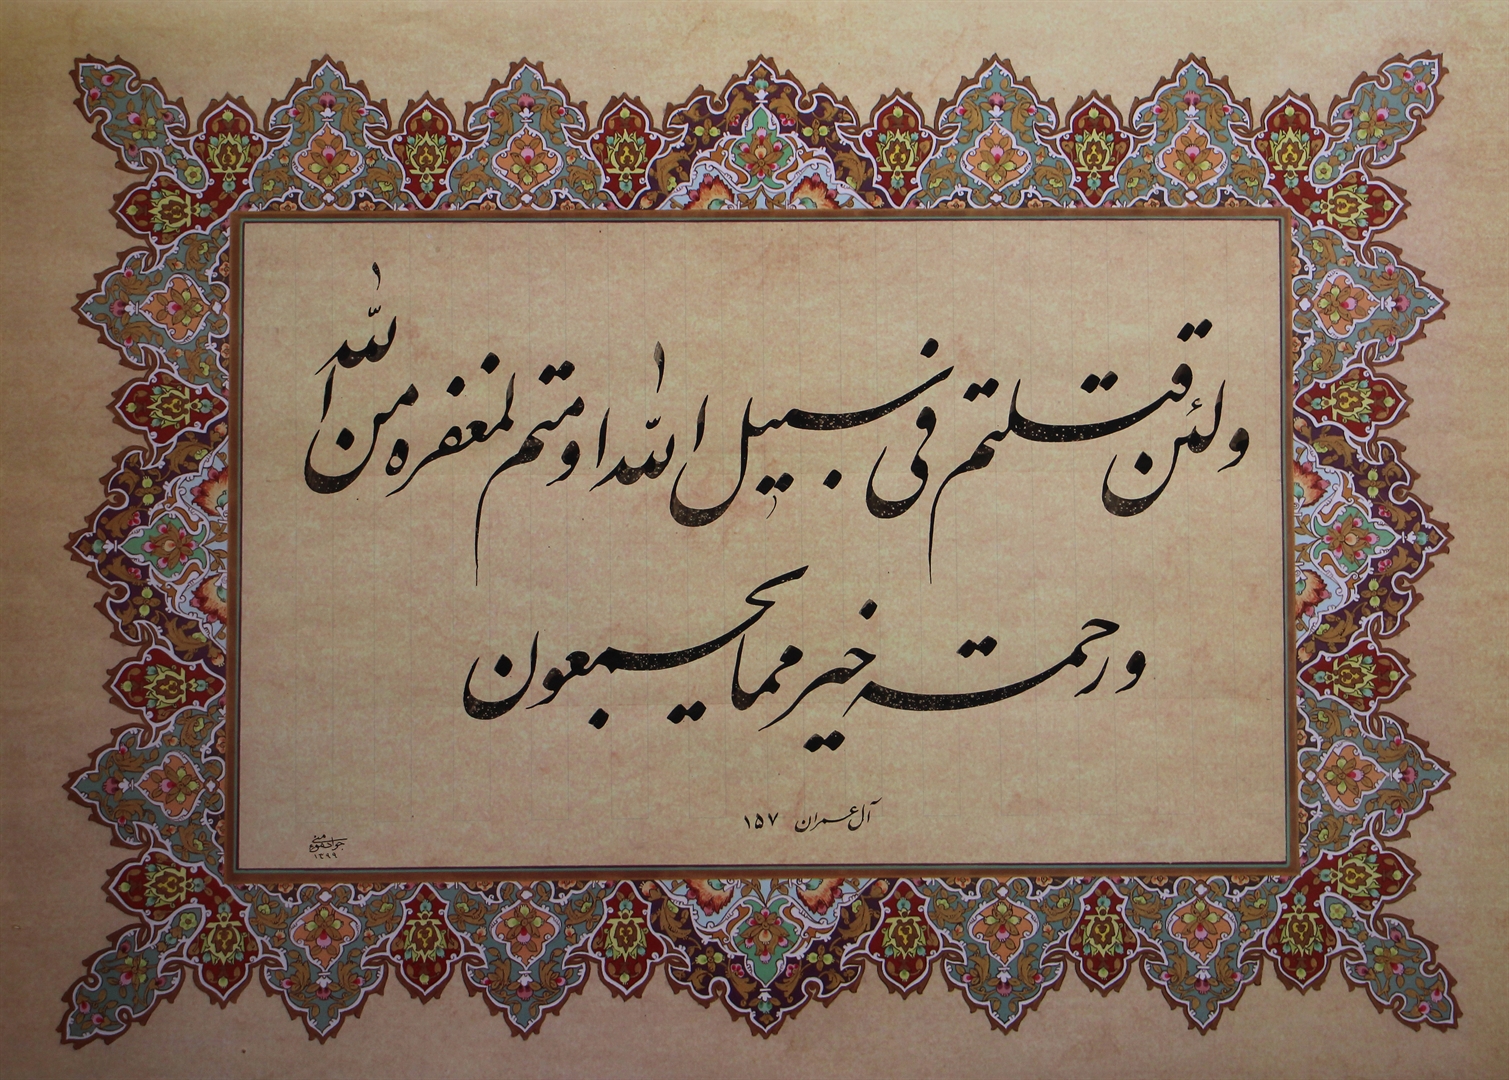 ولئن قتلتم فی سبیل الله او متم لمغفره من الله
ورحمته خیر مما یجمعون
آل عمران ۱۵۷
۱۳۹۹